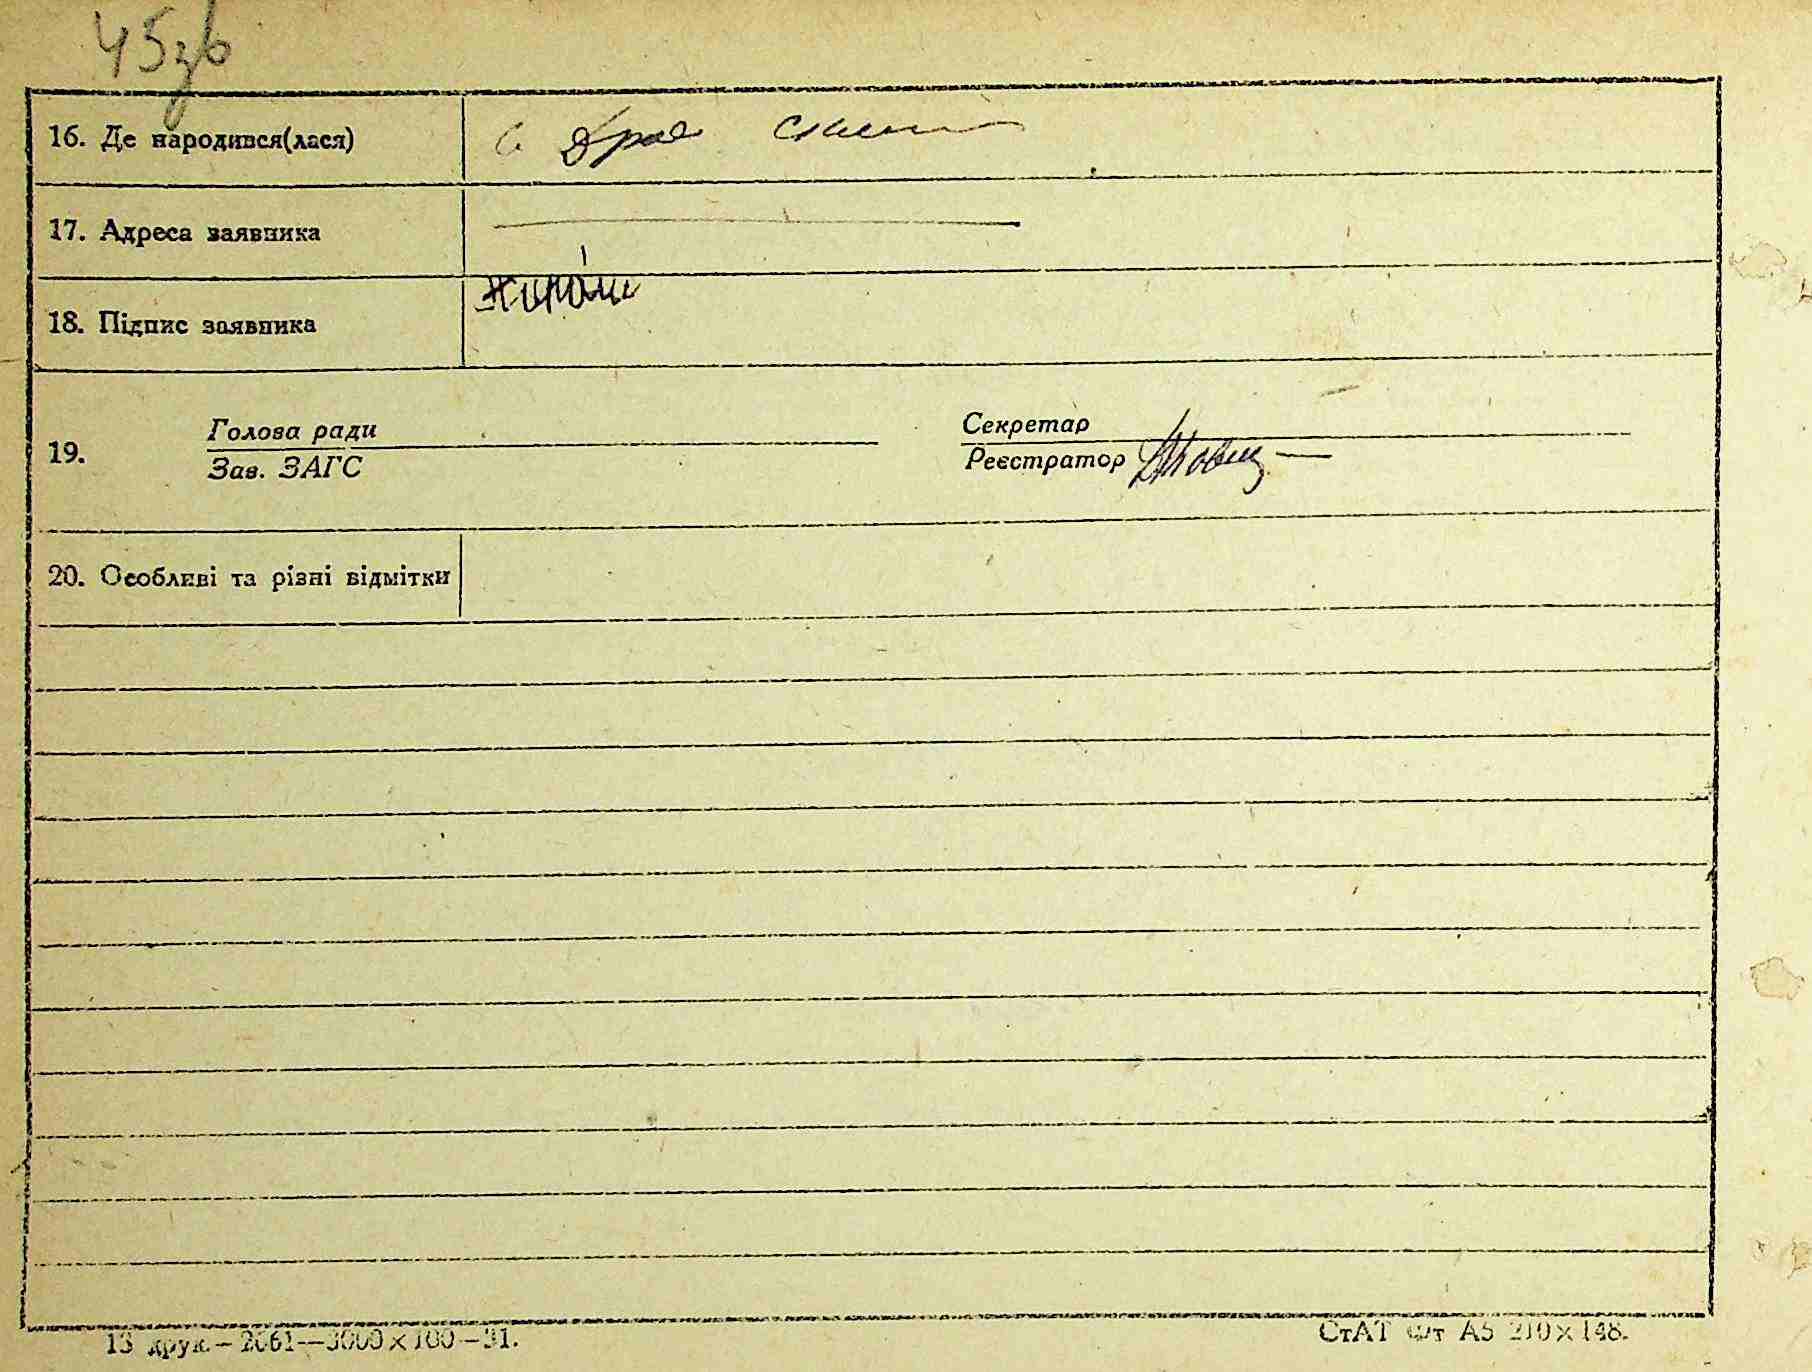 45зв
16. Де народився(лася) с.
17. Адреса заявника
18. Підпис заявника
19. Голова ради
Зав. ЗАГС
Секретар
Реєстратор
20. Особливі та різні відмітки
13 друк.–2061—3000×100–31.
СтАТ Фт А5 210×148.